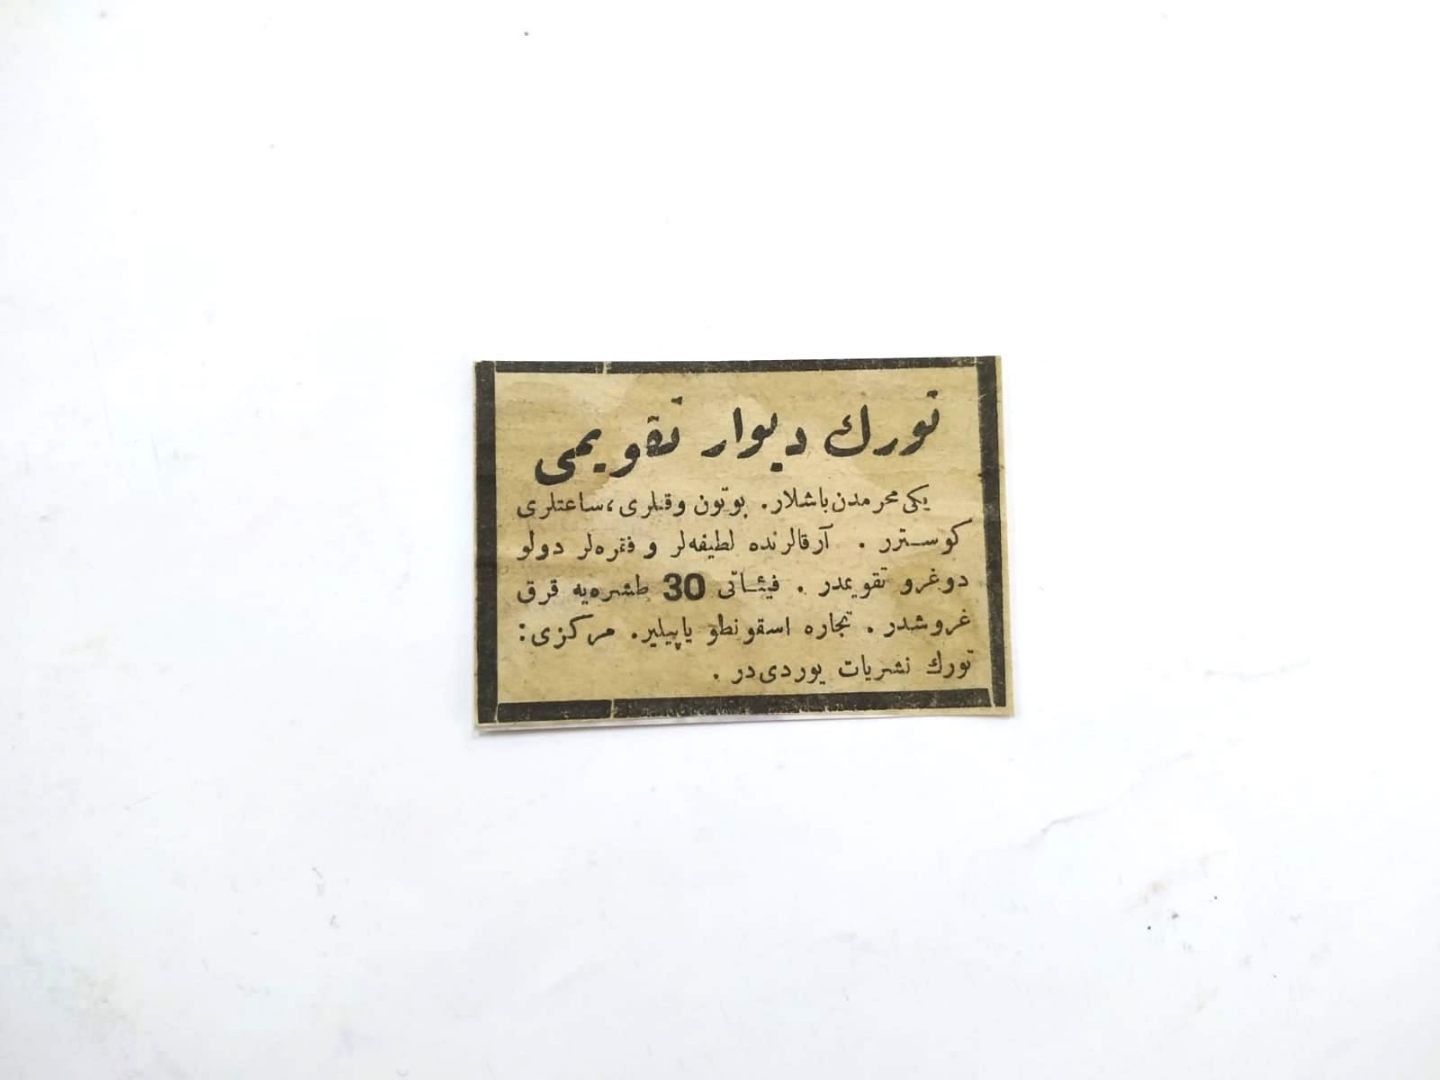 تورك ديوار تقويمى
يكى محرمدن باشلار. بوتون وقتلرى، ساعتلرى
كوسترر . آرقالرنده لطيفه‌لر و فقره‌لر دولو
دوغرو تقويمدر . فيئاتى 30 طشره‌يه قرق
غروشدر . تجاره اسقونطو ياپيلير. مركزى:
تورك نشريات يوردى‌در .